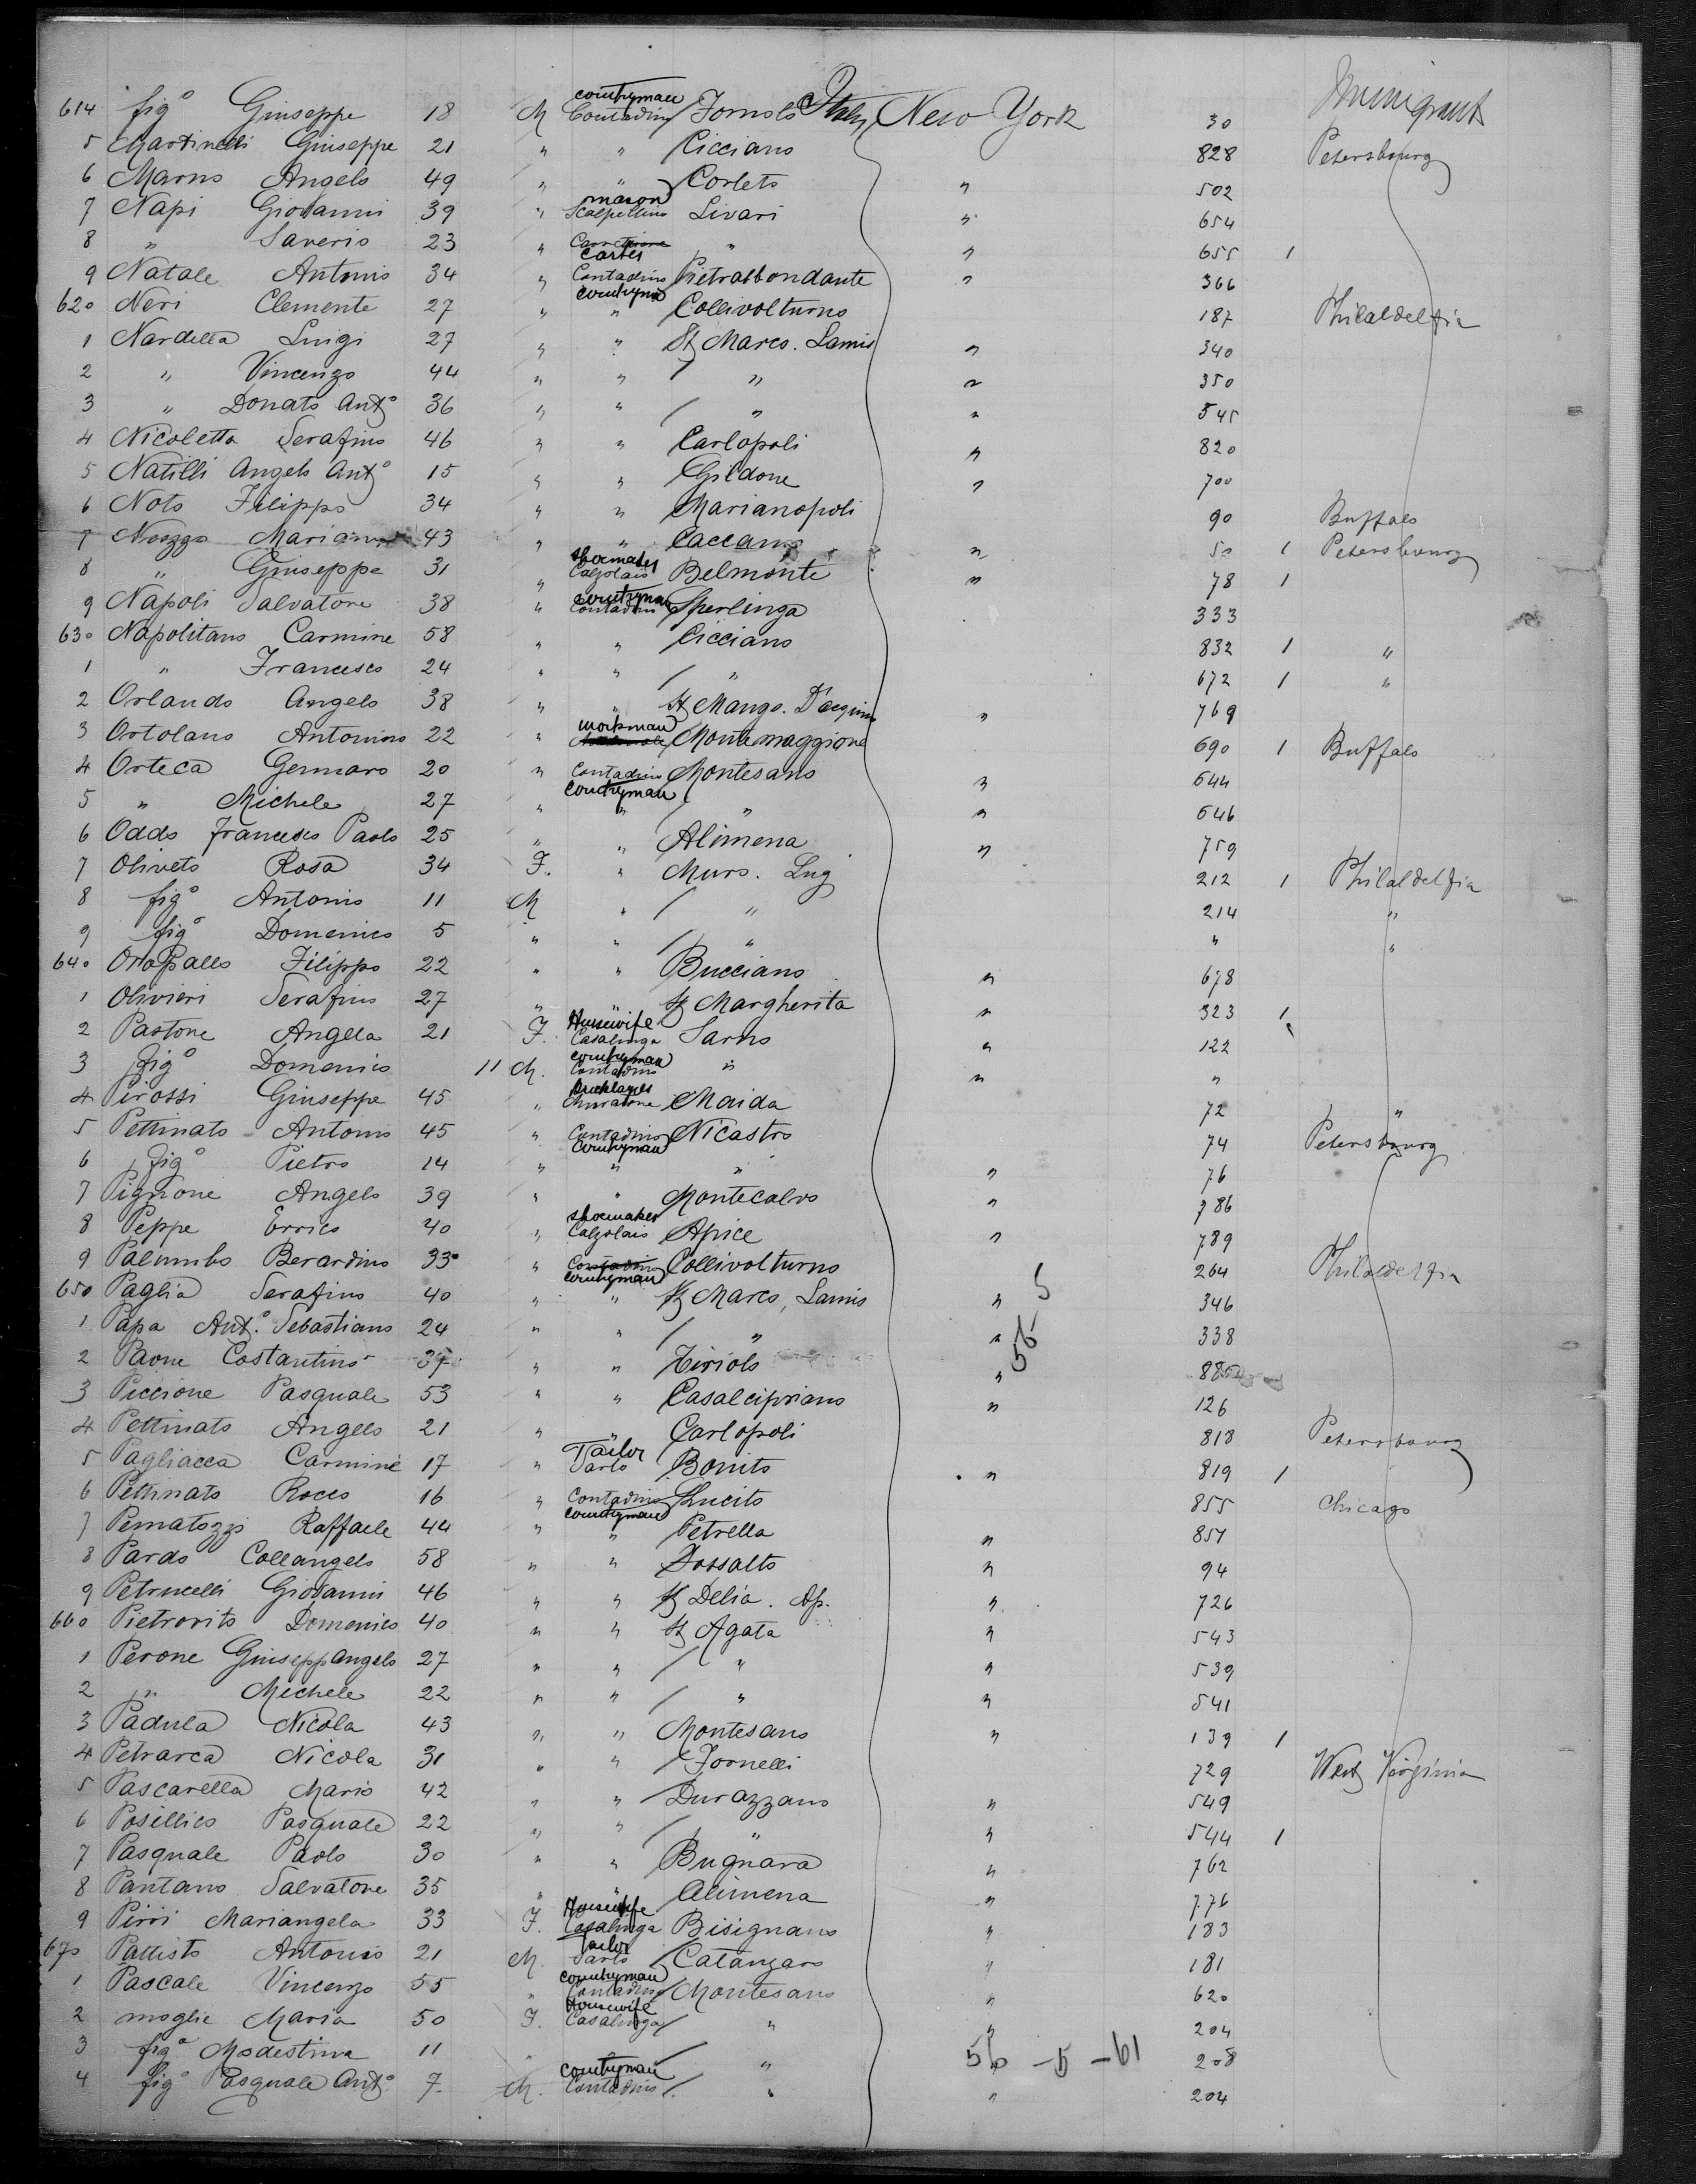 Immigrant
614 figº Giuseppe 18 M countryman Contadino Fornolo Italy New York 30
5 Martinelli Giuseppe 21 " " Cicciano 828 Petersbourg
6 Marno Angelo 49 " " Corleto " 502
7 Napi Giovanni 39 " mason Scalpellino Livari " 654
8 " Saverio 23 " Carter " " 655 1
9 Natale Antonio 34 " Contadino Pietrabbondante " 366
620 Neri Clemente 27 " countryman " Collivolturno 187 Philaldelfia
1 Nardella Luigi 27 " " St Marco. Lamis " 340
2 " Vincenzo 44 " " / " " 350
3 " Donato Antº 36 " " / " " 545
4 Nicoletta Serafino 46 " " Carlopoli " 820
5 Natilli Angelo Antº 15 " " Gildone " 700
6 Noto Filippo 34 " " Marianopoli 90 Buffalo
7 Nozzo Mariano 43 " " Caccamo " 50 1 Petersbourg
8 " Giuseppe 31 " shoemaker Calzolaio Belmonte " 78 1
9 Napoli Salvatore 38 " countryman Contadino Sperlinga 333
630 Napolitano Carmine 58 " " Cicciano 832 1 "
1 " Francesco 24 " " / " 672 1 "
2 Orlando Angelo 38 " " St Mango. D'acquino " 769
3 Ortolano Antonino 22 " workman Montemaggiore 690 1 Buffalo
4 Orteca Gennaro 20 " Contadino Montesano " 644
5 " Michele 27 " countryman " / " " 646
6 Oddo Francesco Paolo 25 " " Alimena " 759
7 Oliveto Rosa 34 F. " Muro. Lug 212 1 Philaldelfia
8 figº Antonio 11 M " / " 214 "
9 figº Domenico 5 " " / " " "
640 Oropallo Filippo 22 " " Bucciano " 678
1 Olivieri Serafino 27 " " St Margherita " 323 1
2 Pastone Angela 21 F. Housewife Casalinga Sarno " 122
3 figº Domenico 11 M. countryman Contadino " " "
4 Pirossi Giuseppe 45 " Bricklayer Muratore Maida 72 "
5 Pettinato Antonio 45 " Contadino Nicastro 74 Petersbourg
6 figº Pietro 14 " countryman " " " 76
7 Pignone Angelo 39 " " Montecalvo " 786
8 Peppe Errico 40 " shoemaker Calzolaio Apice " 789
9 Palumbo Berardino 33 " Contadino Collivolturno 264 Philaldelfia
650 Paglia Serafino 40 " countryman " St Marco, Lamis " 346
1 Papa Antº. Sebastiano 24 " " / " " 338
56-5
2 Paone Costantino 37 " " Tiriolo " 885
3 Piccione Pasquale 53 " " Casalcipriano " 126
4 Pettinato Angelo 21 " " Carlopoli 818 Petersbourg
5 Pagliacca Carmine 17 " Tailor Sarto Bonito " 819 1
6 Pettinato Rocco 16 " Contadino Lucito 855 Chicago
7 Pematozzi Raffaele 44 " countryman " Petrella " 857
8 Pardo Collangelo 58 " " Fossalto " 94
9 Petrucelli Giovanni 46 " " St Delia. Ap. " 726
660 Pietrovito Domenico 40 " " St Agata " 543
1 Perone Giuseppangelo 27 " " / " " 539
2 " Michele 22 " " / " " 541
3 Padula Nicola 43 " " Montesano " 139 1
4 Petrarca Nicola 31 " " Fornelli 729 West Virginia
5 Pascarella Mario 42 " " Durazzano " 549
6 Posillico Pasquale 22 " " / " " 544 1
7 Pasquale Paolo 30 " " Bugnara " 762
8 Pantano Salvatore 35 " " Alimena " 776
9 Pirri Mariangela 33 F. Housewife Casalinga Bisignano " 183
670 Pallisto Antonio 21 M. Tailor Sarto Catanzaro " 181
1 Pascale Vincenzo 55 " countryman Contadino Montesano " 620
2 moglie Maria 50 F. Housewife Casalinga / " " 204
3 figª Modestina 11 " " / " 56-5-61 208
4 figº Pasquale Antº. 7 M. countryman Contadino / " " 204